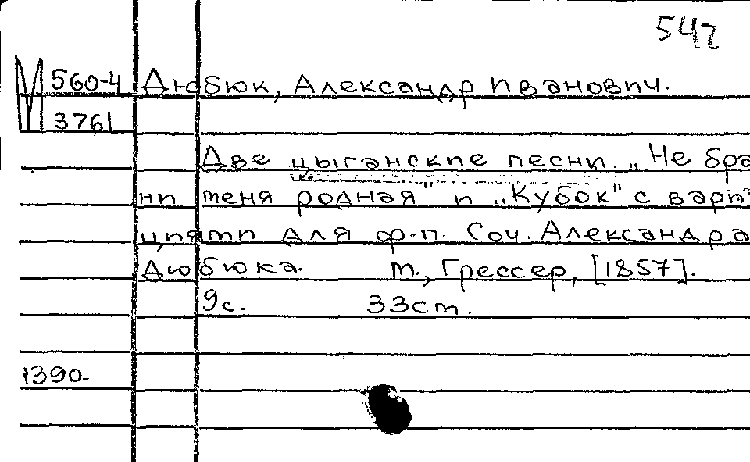 542
М 560-4 Дюбюк, Александр Иванович.
3761
Две цыганские песни. „Не бра
ни меня родная" и „Кубок" с вари
циями для ф.-п. Соч. Александра
Дюбюка. М., Грессер, [1857].
9с. 33см.
1390-